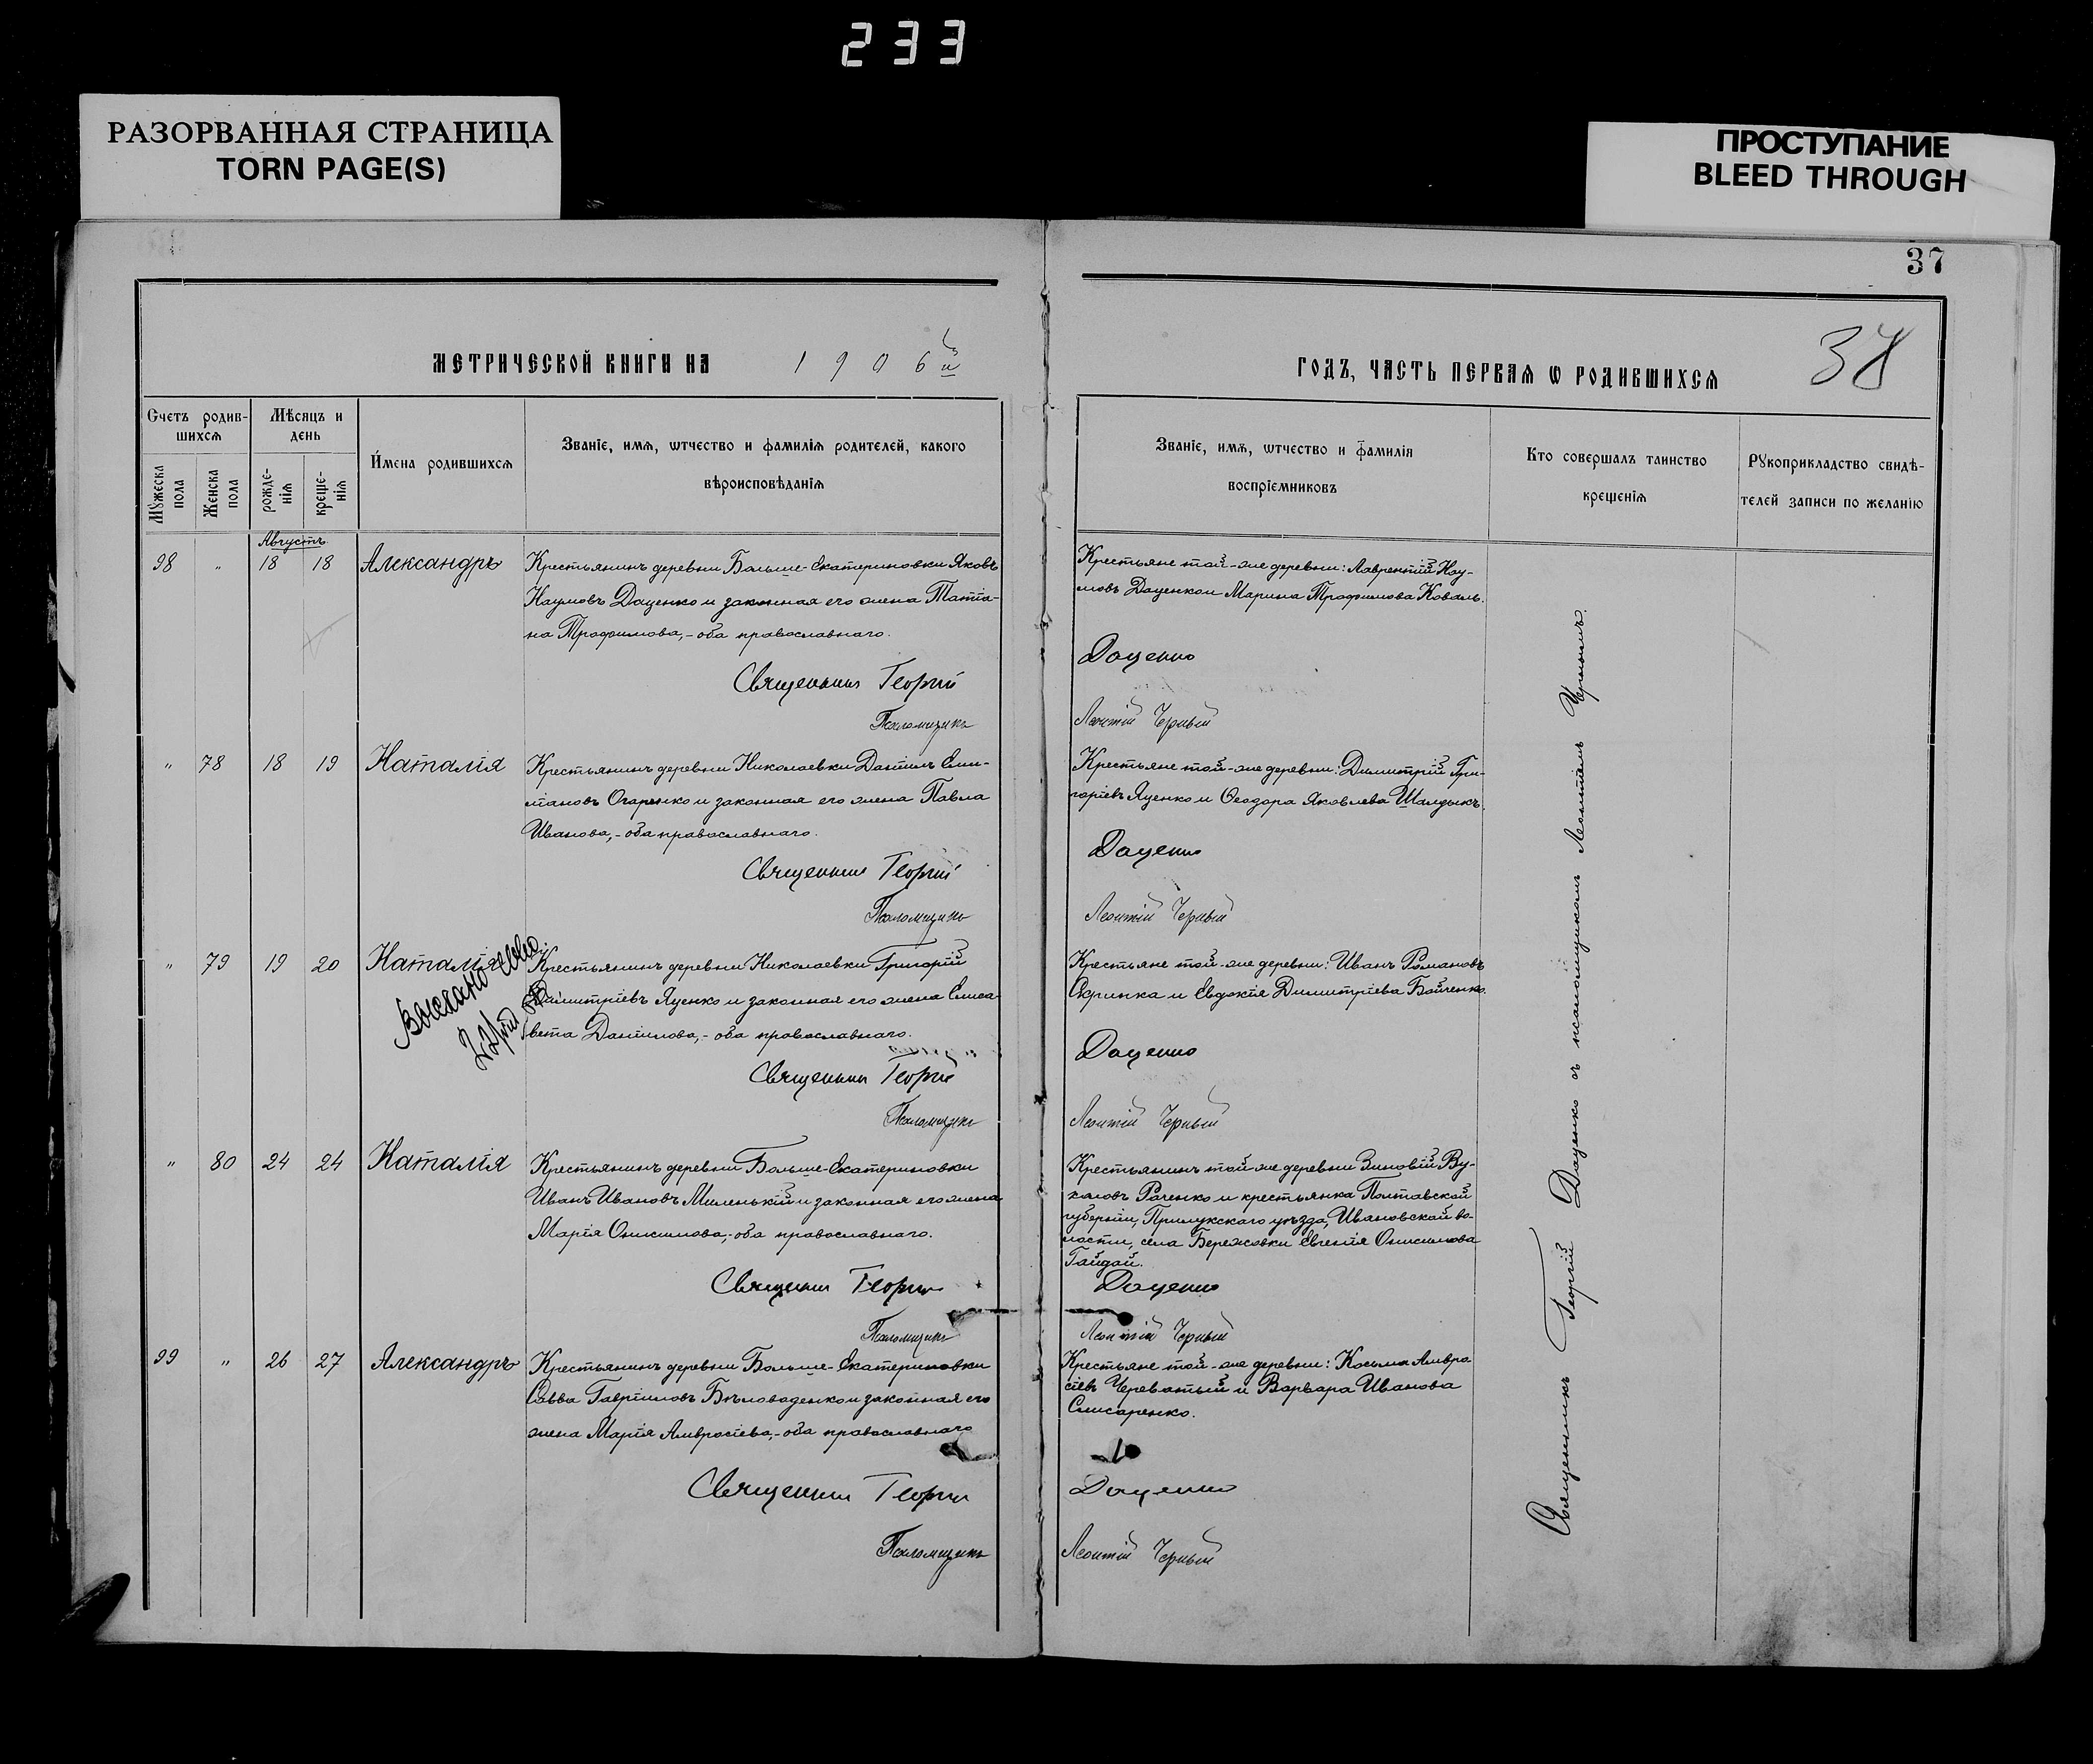 233
РАЗОРВАННАЯ СТРАНИЦА
TORN PAGE(S)
ПРОСТУПАНИЕ
BLEED THROUGH
37
МЕТРИЧЕСКОЙ КНИГИ НА 1906й
ГОДЪ, ЧАСТЬ ПЕРВАЯ Ѡ РОДИВШИХСЯ
Счетъ родив-
шихсѧ
Мѣсяцъ и
день
Мꙋжеска
пола
Женска
пола
рожде-
нїѧ
креще-
нїѧ
Имена родившихсѧ
Званїе, имѧ, ѡтчество и фамилїѧ родителей, какого
вѣроисповѣданїѧ
Званїе, имѧ, ѡтчество и фамилїѧ
воспрїемниковъ
Кто совершалъ таинство
крещенїѧ
Рꙋкоприкладство свидѣ-
телей записи по желанїю
Августъ
98 " 18 18 Александръ
Крестьянинъ деревни Больше-Екатериновки Яковъ
Наумовъ Даценко и законная его жена Татiа-
на Трофимова,- оба православнаго.
Священникъ Георгій
Псаломщикъ
Крестьяне той-же деревни: Лаврентій Нау-
мовъ Даценко и Марина Трофимова Коваль.
Даценко
Леонтій Черный
" 78 18 19 Наталія
Крестьянинъ деревни Николаевки Даніилъ Сти-
Огаренко и законная его жена Павла
Иванова,- оба православнаго.
Священникъ Георгій
Псаломщикъ
Крестьяне той-же деревни: Димитрій Гри-
горіевъ Яценко и Ѳеодора Яковлева Шалдыкъ.
Даценко
Леонтій Черный
" 79 19 20 Наталія
Крестьянинъ деревни Николаевки Григорій
Димитріевъ Яценко и законная его жена Елиса-
вета Даніилова,- оба православнаго.
Священникъ Георгій
Псаломщикъ
Крестьяне той-же деревни: Иванъ Романовъ
Скрипка и Евдокія Димитріева Бойченко.
Даценко
Леонтій Черный
" 80 24 24 Наталія
Крестьянинъ деревни Больше-Екатериновки
Иванъ Ивановъ Миленькій и законная его жена
Марія Онисимова,- оба православнаго.
Священникъ Георгій
Псаломщикъ
Крестьянинъ той-же деревни Зиновій Ву-
коловъ Раченко и крестьянка Полтавской
губерніи, Прилукскаго уѣзда, Ивановской во-
лости, села Бережовки Евгенія Онисимова
Гайдай.
Даценко
Леонтій Черный
99 " 26 27 Александръ
Крестьянинъ деревни Больше-Екатериновки
Савва Гавріиловъ Бѣловоденко и законная его
жена Марія Амвросіева,- оба православнаго
Священникъ Георгій
Псаломщикъ
Крестьяне той-же деревни: Косьма Амвро
сіевъ Череватый и Варвара Иванова
Слисаренко.
Даценко
Леонтій Черный
Священникъ Георгій Даценко съ псаломщикомъ Леонтіемъ Чернымъ.